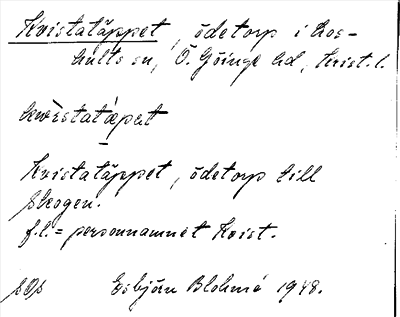 Kvistatäppet, ödetorp i Los-
hults sn, Ö. Göinge hd, Krist. l.
kwistatæpat
Kvistatäppet, ödetorp till
Skogen.
f.l. = personnamnet Kvist.
Esbjörn Blohmé 1948.